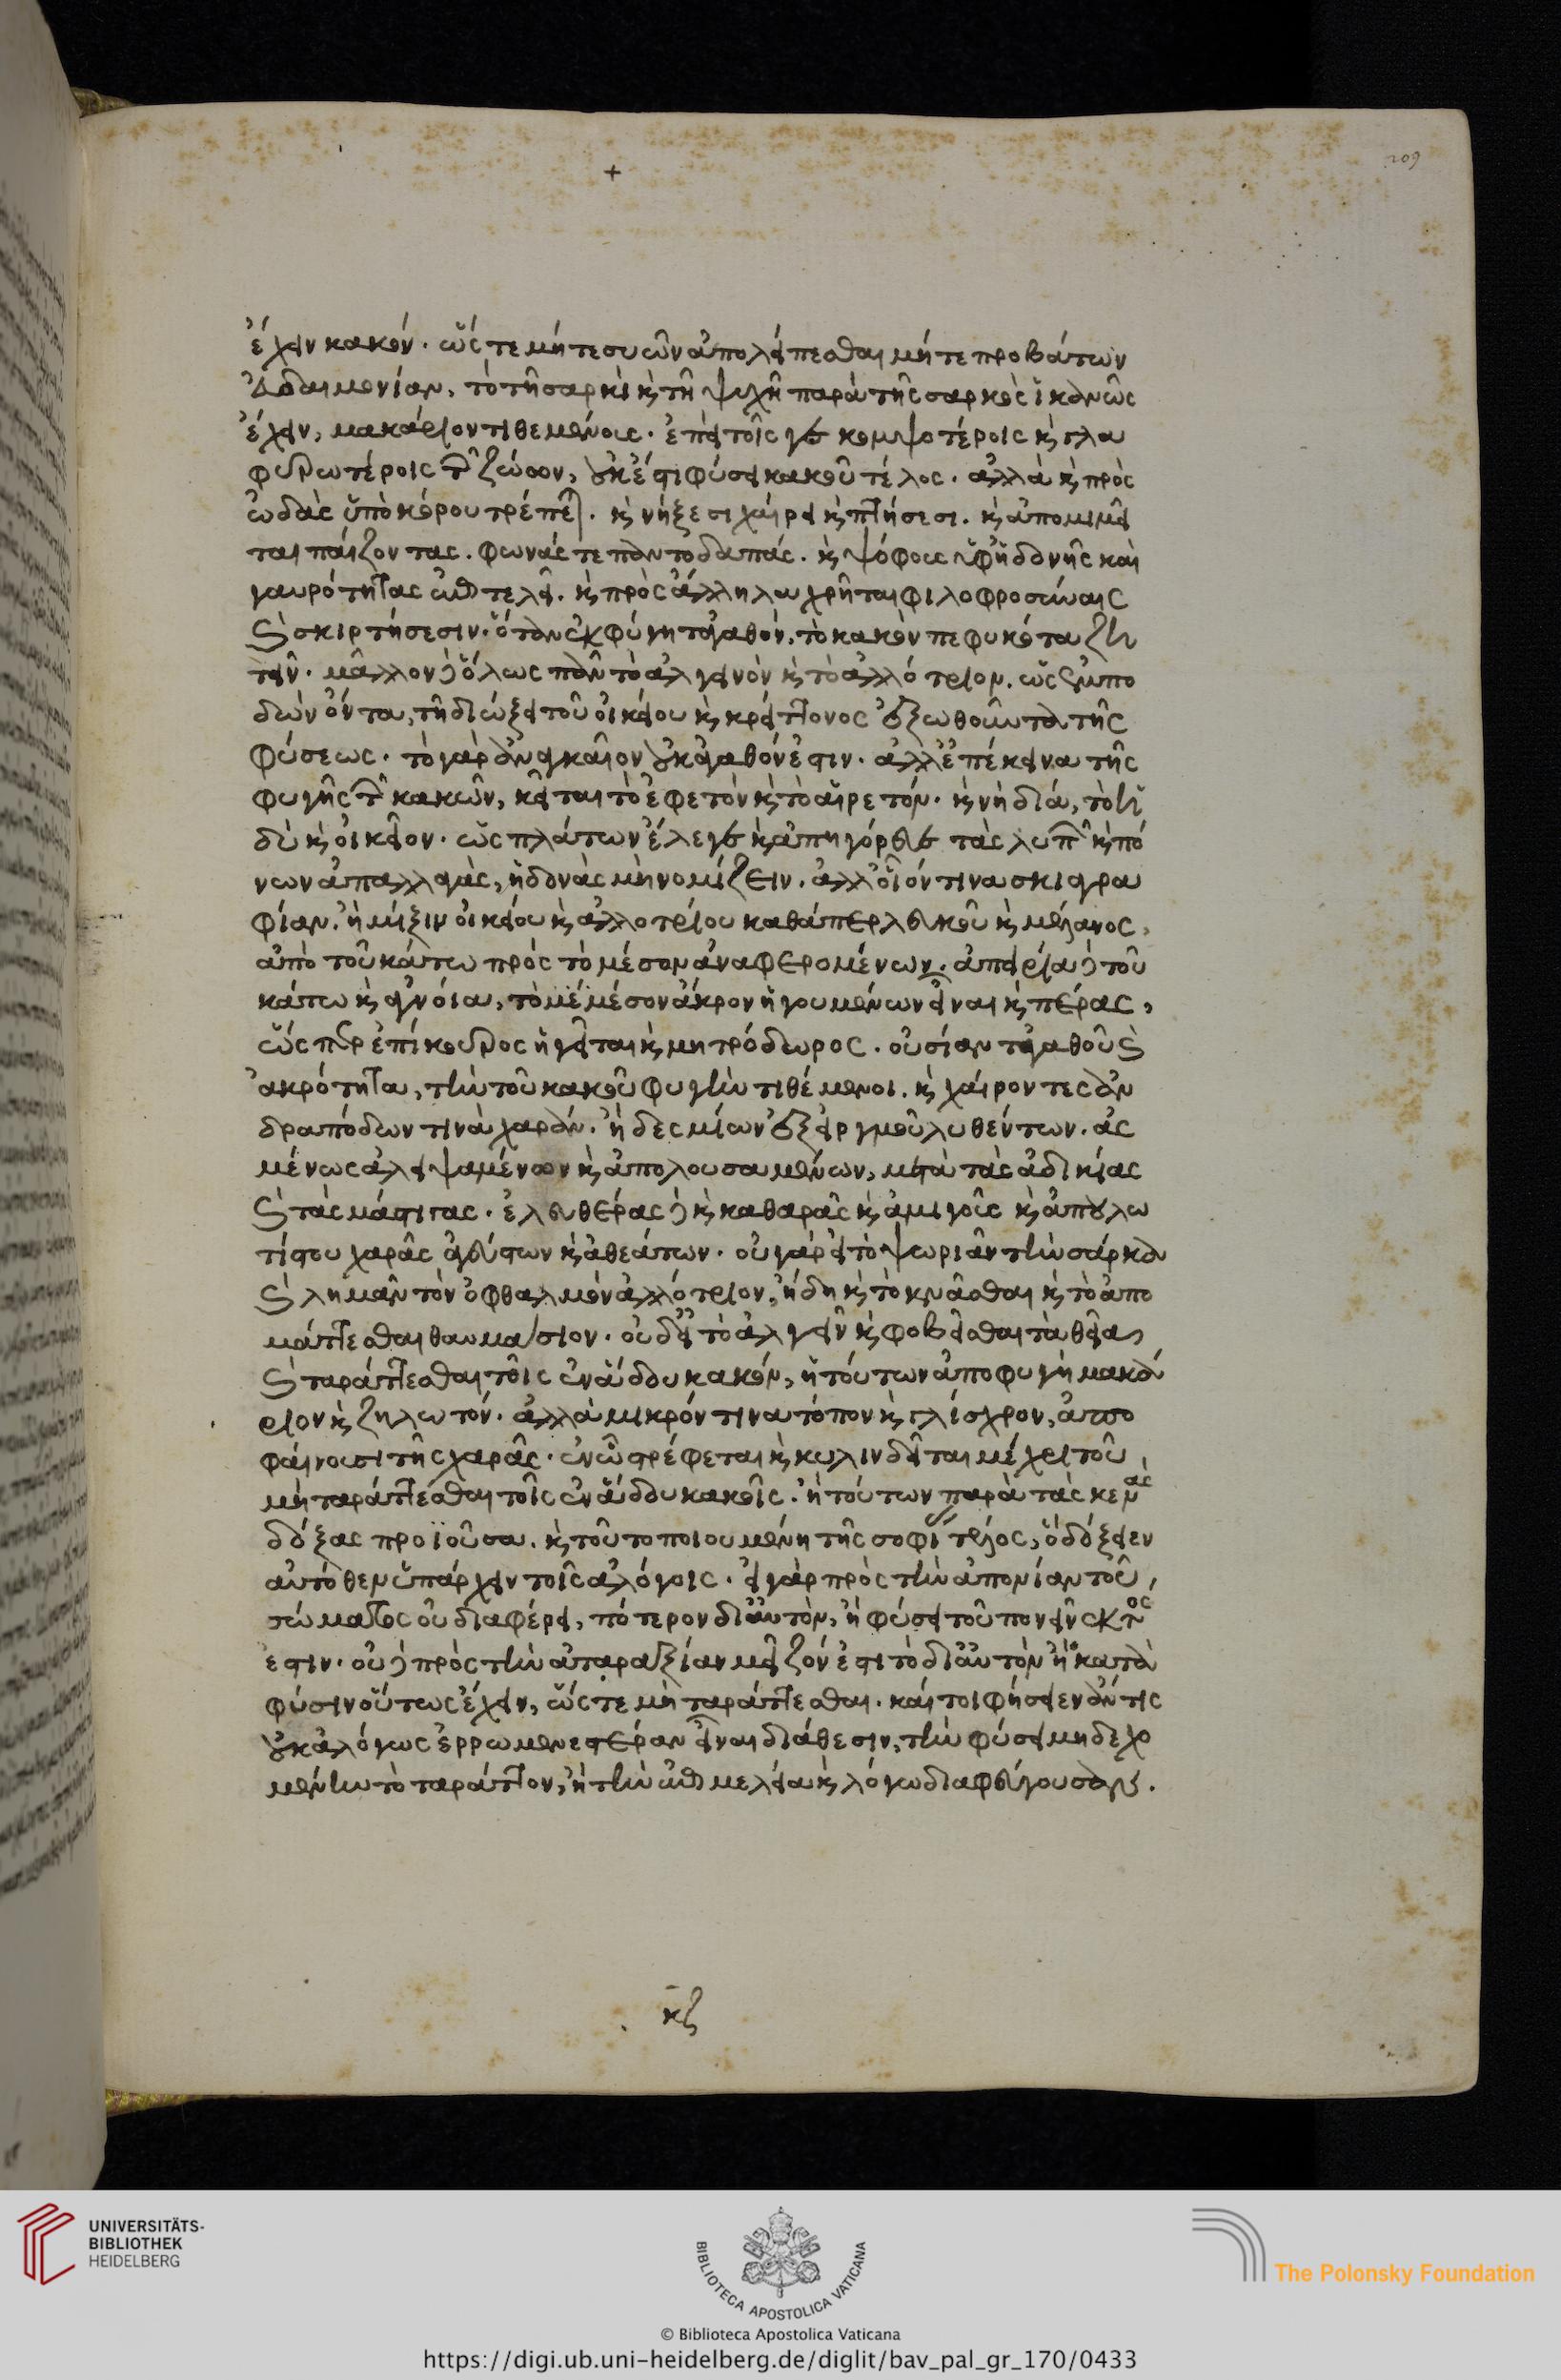 +
209
ἔχειν κακόν. ὥστε μήτε συῶν ἀπολείπεσθαι μήτε προβάτων
εὐδαιμονίαν, τὸ τῇ σαρκὶ κ τῇ ψυχῇ παρὰ τῆς σαρκὸς ἱκανῶς
ἔχειν, μακάριον τιθεμένους. ἐπεὶ τοῖς γε κομψοτέροις κ γλα
φυρωτέροις τῶν ζώων, οὐκ ἔστι φύσει κακοῦ τέλος. ἀλλὰ κ πρὸς
ὠδὰς ὑπὸ κόρου τρέπεται. κ νήξεσι χαίρει κ πτήσεσι. κ ἀπομιμεῖ
ται παίζοντας. φωνάς τε παντοδαπάς. κ ψόφους ὑφ' ἡδονῆς καὶ
γαυρότητας ἐπιτελεῖ. κ πρὸς ἄλληλα χρῆται φιλοφροσύναις
κ σκιρτήσεσιν. ὅταν ἐκφύγῃ τἀγαθόν, τὸ κακὸν πεφυκότα ζη
τεῖν. μᾶλλον δὲ ὅλως πᾶν τὸ ἀλγεινὸν κ τὸ ἀλλότριον. ὡς ἐμπο
δὼν ὄντα, τῇ διώξει τοῦ οἰκείου κ κρείττονος ἐξωθοῦντα τῆς
φύσεως. τὸ γὰρ ἀναγκαῖον οὐκ ἀγαθόν ἐστιν. ἀλλ' ἐπέκεινα τῆς
φυγῆς τῶν κακῶν, κεῖται τὸ ἐφετὸν κ τὸ αἱρετόν. κ νὴ δία, τὸ ἡ
δὺ κ οἰκεῖον. ὡς πλάτων ἔλεγε κ ἀπηγόρευε τὰς λυπῶν κ πό
νων ἀπαλλαγὰς, ἡδονὰς μὴ νομίζειν. ἀλλ' οἷόν τινα σκιαγρα
φίαν. ἢ μίξιν οἰκείου κ ἀλλοτρίου καθάπερ λευκοῦ κ μέλανος,
ἀπὸ τοῦ κάτω πρὸς τὸ μέσον ἀναφερομένων. ἀπειρίαι δὲ τοῦ
κάτω κ ἀγνοίαι, τὸ μὲ μέσον ἄκρον ἡγουμένων εἶναι κ πέρας,
ὥσπερ ἐπίκουρος ἡγεῖται κ μητρόδωρος. οὐσίαν τἀγαθοῦ κ
ἀκρότητα, τὴν τοῦ κακοῦ φυγὴν τιθέμενοι. κ χαίροντες ἀν
δραπόδων τινὰ χαράν. ἢ δεσμίων ἐξ εἱργμοῦ λυθέντων. ἀσ
μένως ἀλειψαμένων κ ἀπολουσαμένων, μετὰ τὰς ἀδικίας
κ τὰς μάστιγας. ἐλευθέρας δὲ κ καθαρᾶς κ ἀμιγοῖς κ ἀπουλω
τίστου χαρᾶς ἀγεύστων κ ἀθεάτων. οὐ γὰρ εἰ τὸ ψωριᾶν τὴν σάρκα
κ λημᾶν τὸν ὀφθαλμὸν ἀλλότριον, ἤδη κ τὸ κνᾶσθαι κ τὸ ἀπο
μάττεσθαι θαυμάσιον. οὐδ' εἰ τὸ ἀλγεῖν κ φοβεῖσθαι τὰ θεῖα,
κ ταράττεσθαι τοῖς ἐν ᾅδου κακόν, ἡ τούτων ἀποφυγὴ μακά
ριον κ ζηλωτόν. ἀλλὰ μικρόν τινα τόπον κ γλίσχρον, ἀπο
φαίνουσι τῆς χαρᾶς. ἐν ᾧ στρέφεται κ κυλινδεῖται μέχρι τοῦ
μὴ ταράττεσθαι τοῖς ἐν ᾅδου κακοῖς. ἡ τούτων παρὰ τὰς κενὰς
δόξας προϊοῦσα. κ τοῦτο ποιουμένη τῆς σοφίας τέλος, ὃ δόξειεν
αὐτόθεν ὑπάρχειν τοῖς ἀλόγοις. εἰ γὰρ πρὸς τὴν ἀπονίαν τοῦ
σώματος οὐ διαφέρει, πότερον δι' αὑτὸν, ἢ φύσει τοῦ πονεῖν ἐκτός
ἐστιν. οὐδὲ πρὸς τὴν ἀταραξίαν μεῖζόν ἐστι τὸ δι' αὑτὸν ἢ κατὰ
φύσιν οὕτως ἔχειν, ὥστε μὴ ταράττεσθαι. καίτοι φήσειεν ἄν τις
οὐκ ἀλόγως ἐρρωμενεστέραν εἶναι διάθεσιν, τὴν φύσει μὴ δεχο
μένην τὸ ταράττον, ἢ τὴν ἐπιμελείᾳ κ λόγῳ διαφεύγουσαν.
κζ
UNIVERSITÄTS-
BIBLIOTHEK
HEIDELBERG
BIBLIOTECA APOSTOLICA VATICANA
The Polonsky Foundation
© Biblioteca Apostolica Vaticana
https://digi.ub.uni-heidelberg.de/diglit/bav_pal_gr_170/0433